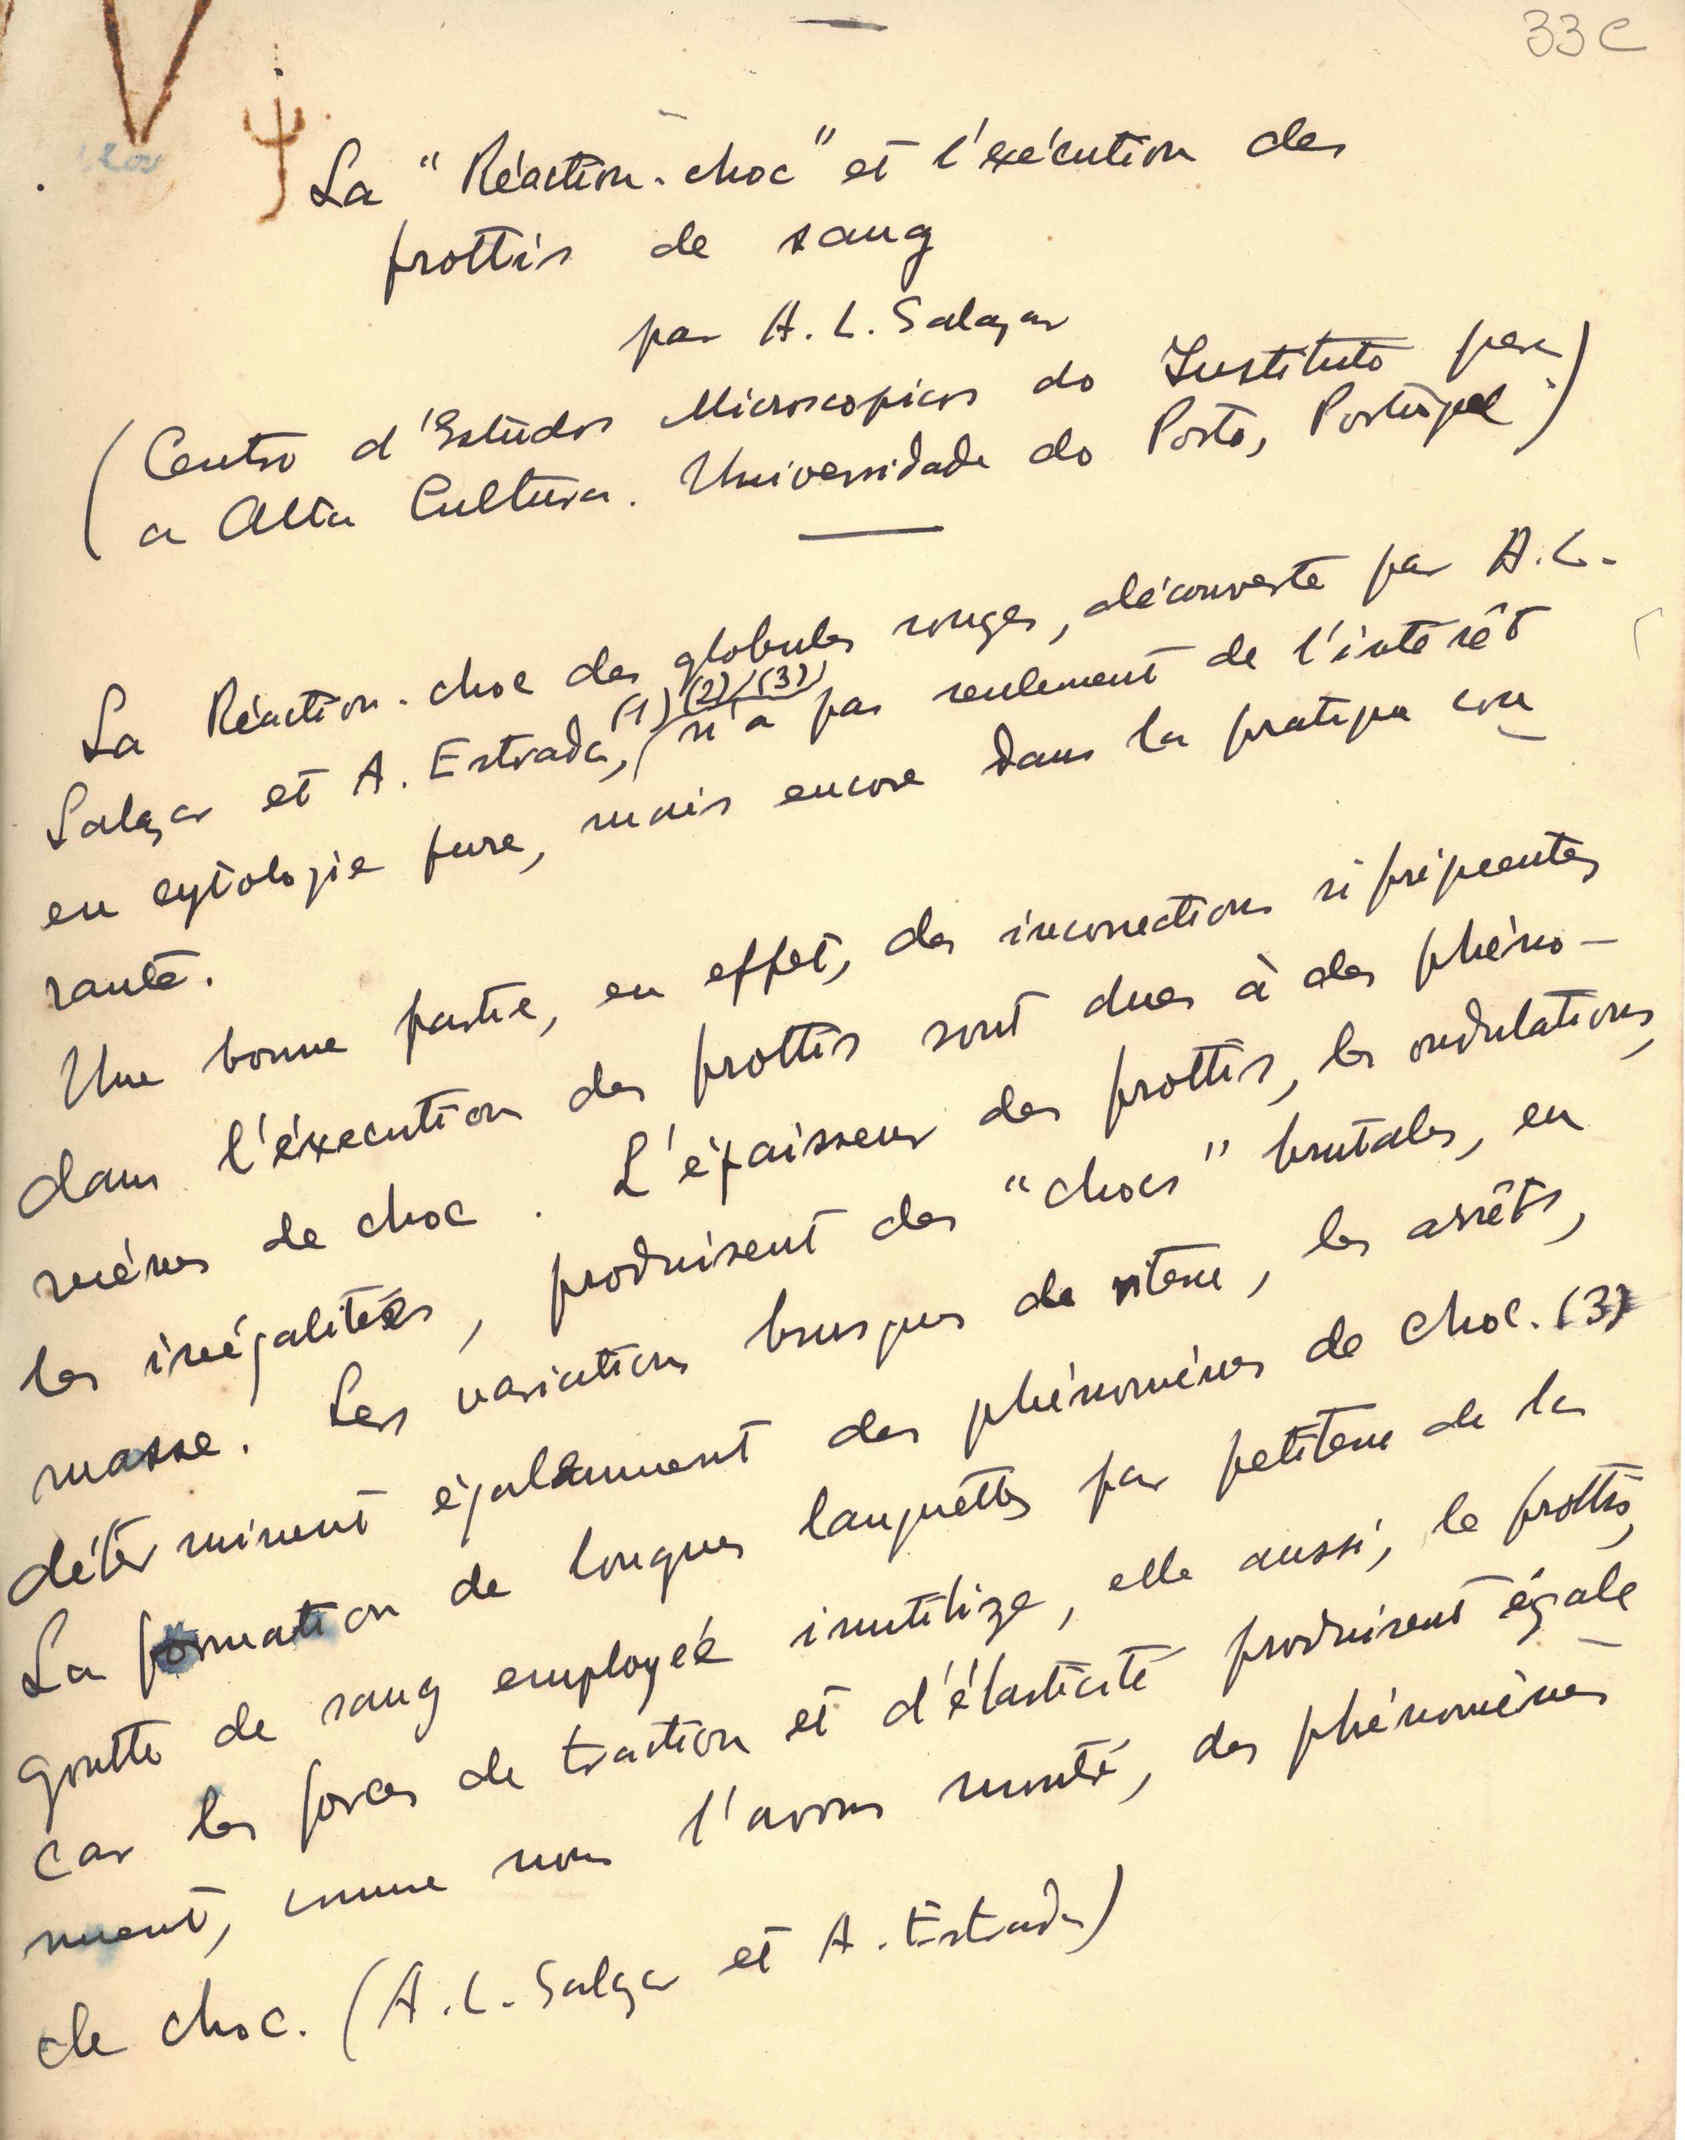 33C
La "Réaction-choc" et l'exécution des
frottis de sang
par A. L. Salazar
(Centro d'Estudos Microscopicos do Instituto para
a Alta Cultura. Universidade do Porto, Portugal)
La Réaction-choc des globules rouges, découverte par A.L.
Salazar et A. Estrada, (1) (2) (3) n'a pas seulement de l'intérêt
en cytologie pure, mais encore dans la pratique cou
rante.
Une bonne partie, en effet, des incorrections si fréquentes
dans l'éxecution des frottis sont dues à des phéno-
mènes de choc. L'épaisseur des frottis, les ondulations,
les inégalités, produisent des "chocs" brutales, en
masse. Les variations brusques de vitesse, les arrêts,
déterminent également des phénomènes de choc. (3)
La formation de longues languettes par petitesse de la
goutte de sang employée inutilize, elle aussi, le frottis,
car les forces de traction et d'élasticité produisent égale
ment, comme nous l'avons montré, des phénomènes
de choc. (A. L. Salazar et A. Estrada)